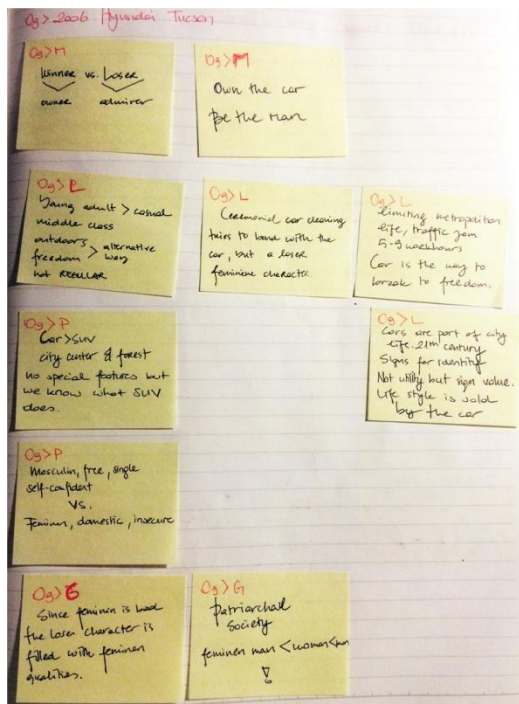 Og > 2006 Hyundai Tucson
Og > M
Winner vs. Loser
owner admirer
Og > M
Own the car
Be the man
Og > P
Young adult > casual
middle class
outdoors > alternative
freedom way
not REGULAR
Og > L
Ceremonial car cleaning
tries to bond with the
car, but a loser
feminine character
Og > L
limiting metropolitan
life, traffic jam
5-9 workhours
Car is the way to
break to freedom.
Og > P
Car > SUV
city center & forest
no special features but
we know what SUV
does.
Og > L
Cars are part of city
life. 21th century
Signs for identity
Not utility but sign value.
Life style is sold
by the car
Og > P
Masculin, free, single
self-confident
VS.
Feminen, domestic, insecure
Og > G
Since feminen is bad
the loser character is
filled with feminen
qualities.
Og > G
patriarchal
society
feminen man < woman < man